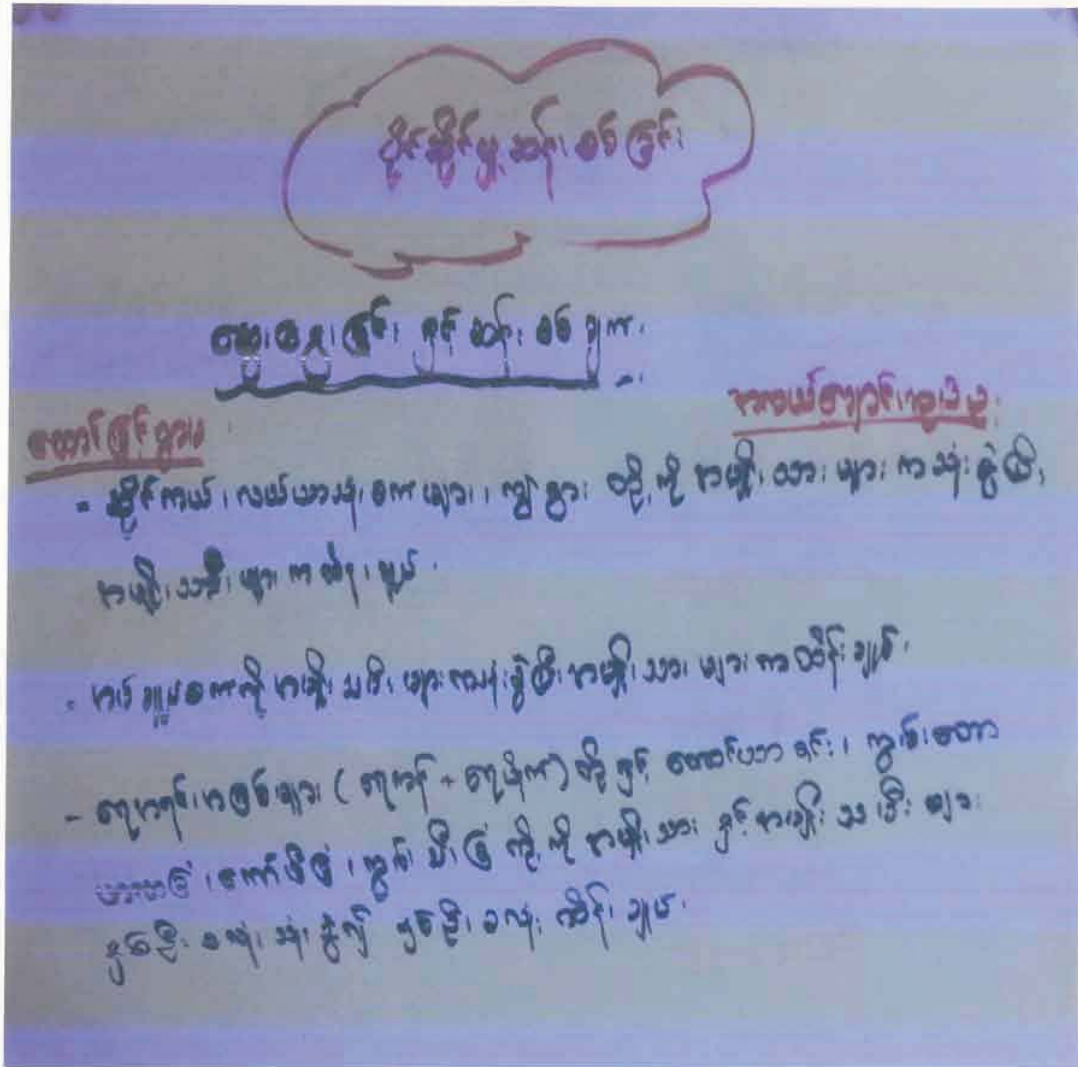 ပိုင်ဆိုင်မှု ဆန်းစစ်ခြင်း
ဆွေးနွေးခြင်း နှင့် ဆန်းစစ်ချက်
တောင်ခြင်ရွာမ
အလယ်ကျောင်းရွာ
- ဆိုင်ကယ်၊ လယ်ယာသုံးစက်များ၊ ကျွဲနွား တို့ကို အမျိုးသားများ ကသုံးစွဲပြီး
အမျိုးသမီးများ ကထိန်းချုပ်
- အပ်ချုပ်စက်ကို အမျိုးသမီးများကသုံးစွဲပြီး အမျိုးသားများကထိန်းချုပ်
- ရေအရင်းအမြစ်များ ( ရေကန် + ရေပိုက်) တို့နှင့် တောင်ယာခင်း၊ ကွမ်းတော
ခြံ၊ ကော်ဖီခြံ၊ ကွမ်းသီးခြံ တို့ကို အမျိုးသား နှင့် အမျိုးသမီး များ
နှစ်ဦးစလုံး သုံးစွဲ၍ နှစ်ဦးစလုံး ထိန်းချုပ်